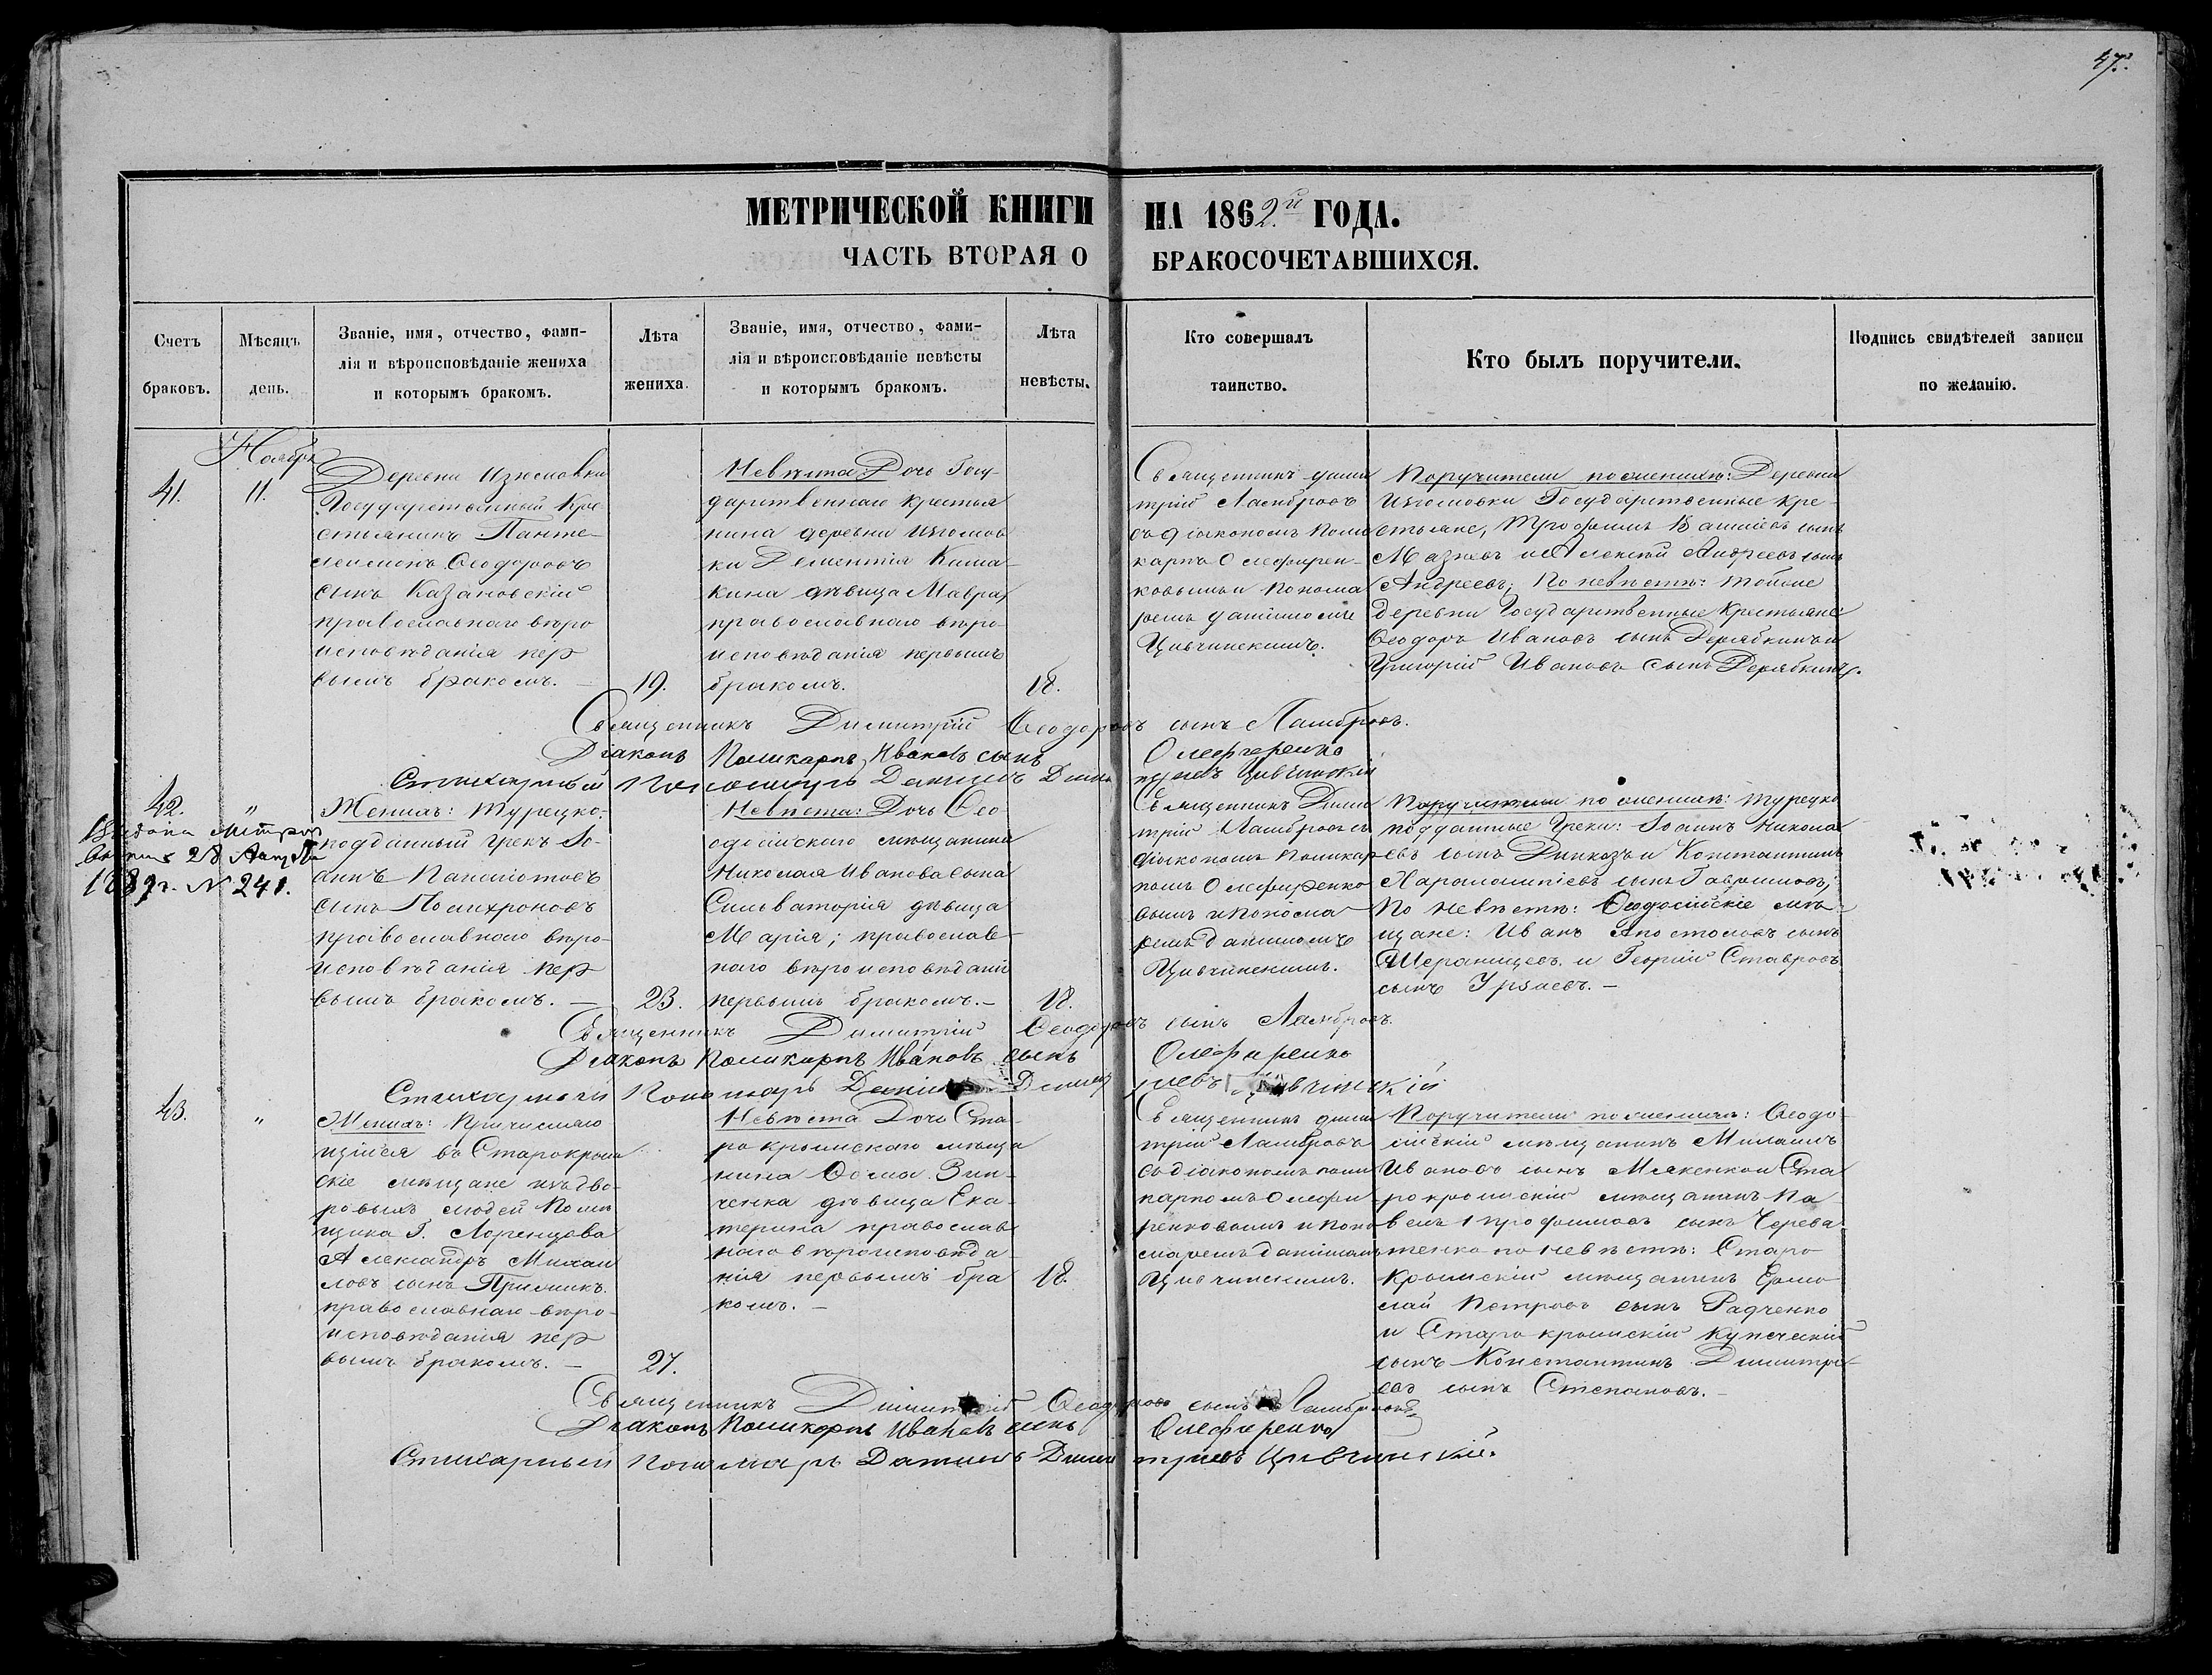 47.
МЕТРИЧЕСКОЙ КНИГИ НА 1862й ГОДА.
ЧАСТЬ ВТОРАЯ О БРАКОСОЧЕТАВШИХСЯ.
Счетъ
браковъ.
Мѣсяцъ
день.
Званіе, имя, отчество, фами-
лія и вѣроисповѣданіе жениха
и которымъ бракомъ.
Лѣта
жениха.
Званіе, имя, отчество, фами-
лія и вѣроисповѣданіе невѣсты
и которымъ бракомъ.
Лѣта
невѣсты.
Кто совершалъ
таинство.
Кто былъ поручители.
Подпись свидѣтелей записи
по желанію.
Ноябрь
41.
11.
Деревни Изюмовки
Государственный Кре
стьянинъ Панте-
леимонъ Ѳеодоровъ
сынъ Казановскій
православнаго вѣро
исповѣданія пер
вымъ бракомъ. —
19.
Невѣста: Дочь Госу-
дарственнаго крестья
нина деревни Изюмов
ки Дементія Кима-
кина дѣвица Мавра,
православнаго вѣро-
исповѣданія первымъ
бракомъ.
18.
Священникъ Дими
трій Ламбровъ
съ діакономъ Поли
карпъ Олефирен-
ковымъ и Понома
ремъ Даніиломъ
Цивчинскимъ.
Поручители по женихѣ: Деревни
Изюмовки Государственные кре-
стьяне, Трофимъ Васильевъ сынъ
Мазневъ и Алексѣй Андреевъ сынъ
Андреевъ; По невѣстѣ: тойже
деревни Государственные Крестьяне
Ѳеодоръ Ивановъ сынъ Дерябкинъ и
Григорій Ивановъ сынъ Дерябкинъ.
Священникъ Димитрій Ѳеодоровъ сынъ Ламбровъ.
Діаконъ Поликарпъ Ивановъ сынъ Олефиренко
Стихарный Пономарь Даніилъ Димитріевъ Цивчинскій
42.
"
Выдана Метрич
28 Августа
1889 г. № 241.
Женихъ: Турецко-
подданный Грекъ Іо-
аннъ Панаіотовъ
сынъ Полихроновъ
православнаго вѣро-
исповѣданія пер
вымъ бракомъ. —
23.
Невѣста: Дочь Ѳео-
досійскаго мѣщанина
Николая Иванова сына
Сильваторія дѣвица
Марія; православ-
наго вѣроисповѣданія
первымъ бракомъ. —
18.
Священникъ Дими
трій Ламбровъ съ
діакономъ Поликар
помъ Олефиренко
вымъ и понома-
ремъ Даніиломъ
Цивчинскимъ.
Поручители по женихѣ: Турецко
подданные Греки: Іоаннъ Никола
евъ сынъ и Константинъ
Харалампіевъ сынъ Гавриловъ;
По невѣстѣ: Ѳеодосійскіе мѣ-
щане: Иванъ Апостоловъ сынъ
и Георгій Ставровъ
сынъ —
Священникъ Димитрій Ѳеодоровъ сынъ Ламбровъ.
Діаконъ Поликарпъ Ивановъ сынъ Олефиренко
Стихарный Пономарь Даніилъ Димитріевъ Цивчинскій
43.
"
Женихъ: Причисляю
щійся въ Старокрым
скіе мѣщане изъ дво-
ровыхъ людей Помѣ
щика Г. Лоренцова
Александръ Михаи
ловъ сынъ Примакъ.
православнаго вѣро-
исповѣданія пер
вымъ бракомъ. —
27.
Невѣста Дочь Ста-
рокрымскаго мѣща
нина Ѳомы Зин-
ченка дѣвица Ека-
терина православ
наго вѣроисповѣда-
нія первымъ бра
комъ. —
18.
Священникъ Дими
трій Ламбровъ
съ діакономъ Поли
карпомъ Олефи
ренковымъ и поно
маремъ Даніиломъ
Цивчинскимъ.
Поручители по женихѣ: Ѳеодо-
сійскій мѣщанинъ Михаилъ
Ивановъ сынъ и Ста
рокрымскій мѣщанинъ Па-
велъ Трофимовъ сынъ Черева
тенко по невѣстѣ: Старо
Крымскій мѣщанинъ Ермо
лай Петровъ сынъ Радченко
и Старокрымскій купеческій
сынъ Константинъ Димитрі-
евъ сынъ Степановъ. —
Священникъ Димитрій Ѳеодоровъ сынъ Ламбровъ
Діаконъ Поликарпъ Ивановъ сынъ Олефиренко
Стихарный Пономарь Даніилъ Димитріевъ Цивчинскій.